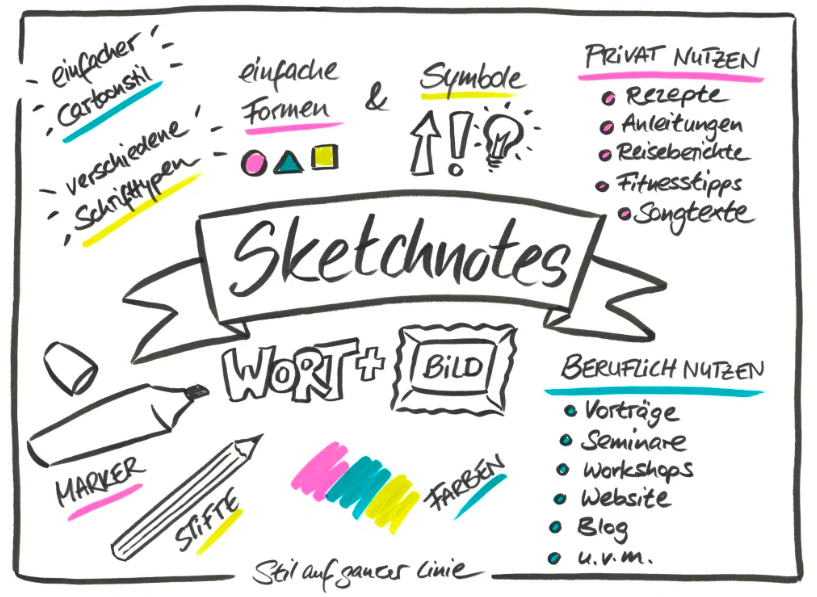 einfacher
Cartoonstil
verschiedene
Schrifttypen
einfache
Formen
&
Symbole
!
PRIVAT NUTZEN
Rezepte
Anleitungen
Reiseberichte
Fitnesstipps
Songtexte
Sketchnotes
WORT + BILD
MARKER
STIFTE
FARBEN
BERUFLICH NUTZEN
Vorträge
Seminare
Workshops
Website
Blog
u.v.m.
Stil auf ganzer Linie